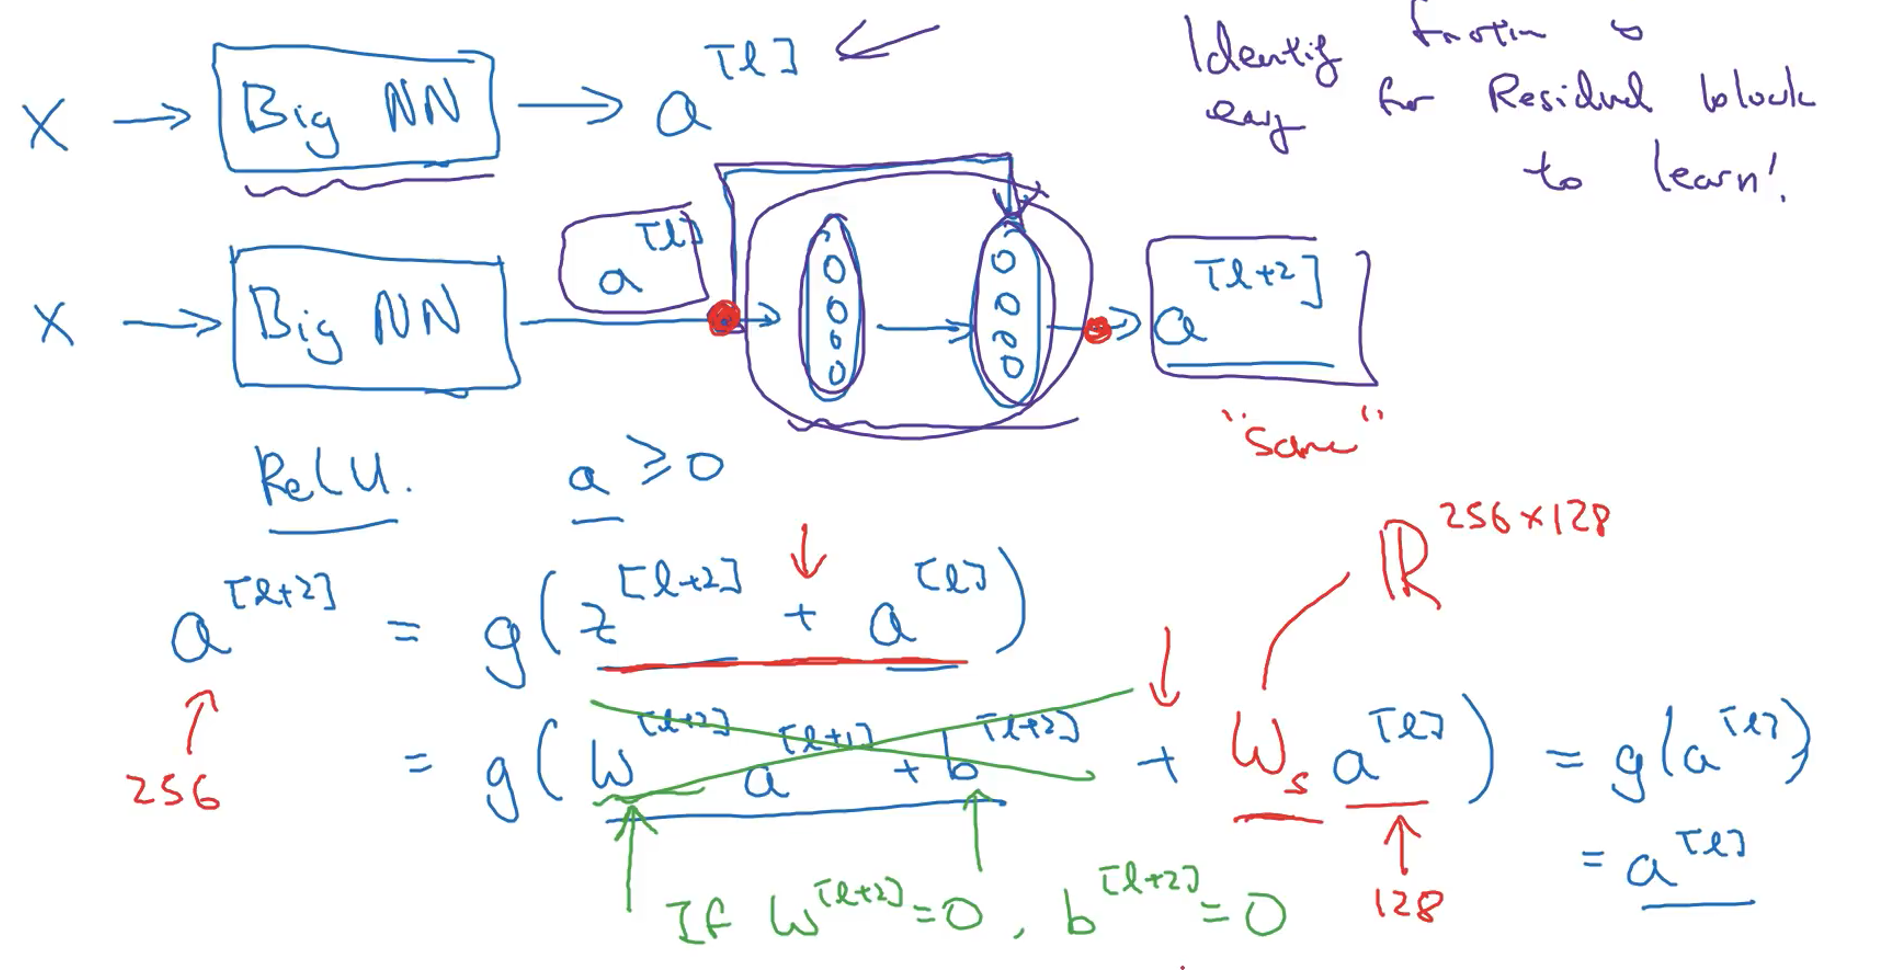 X → Big NN → a^[l]
Identity function is
easy for Residual block
to learn!
X → Big NN → a^[l] → → a^[l+2]
"Same"
ReLU. a ≥ 0
ℝ^256×128
a^[l+2] = g(z^[l+2] + a^[l])
256
= g(W^[l+2] a^[l+1] + b^[l+2] + W_s a^[l]) = g(a^[l])
= a^[l]
128
If W^[l+2] = 0, b^[l+2] = 0